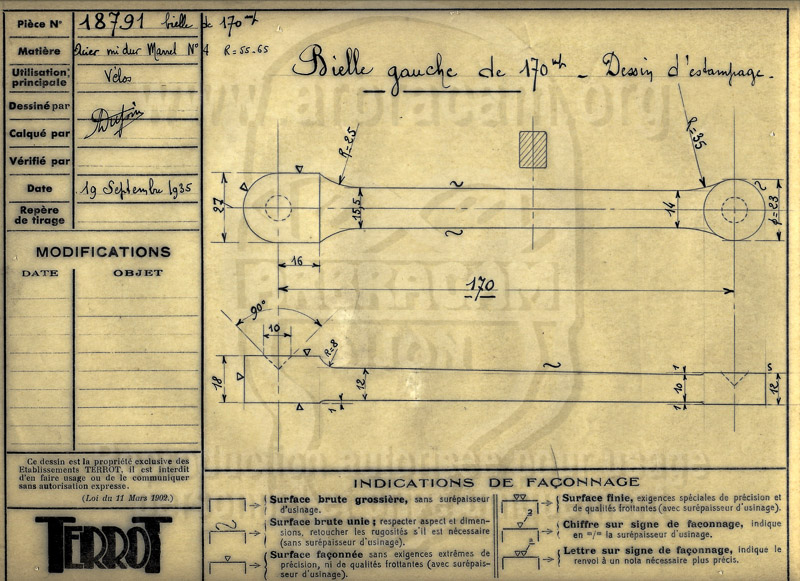 Pièce N° 18791 bielle de 170 m/m
Matière Acier mi dur Marrel N° 4 R = 55-65
Utilisation principale Vélos
Dessiné par
Calqué par
Vérifié par
Date 19 Septembre 1935
Repère de tirage
MODIFICATIONS
DATE OBJET
Ce dessin est la propriété exclusive des
Etablissements TERROT, il est interdit
d'en faire usage ou de le communiquer
sans autorisation expresse.
(Loi du 11 Mars 1902.)
TERROT
Bielle gauche de 170 m/m _ Dessin d'estampage.
R=25
R=35
27
15,5
14
φ=23
16
170
90°
10
R=8
18
12
1
1
10
1
S
12
INDICATIONS DE FAÇONNAGE
Surface brute grossière, sans surépaisseur
d'usinage.
Surface brute unie ; respecter aspect et dimen-
sions, retoucher les rugosités s'il est nécessaire
(sans surépaisseur d'usinage).
Surface façonnée sans exigences extrêmes de
précision, ni de qualités frottantes (avec surépais-
seur d'usinage).
Surface finie, exigences spéciales de précision et
de qualités frottantes (avec surépaisseur d'usinage).
Chiffre sur signe de faconnage, indique
en =/= la surépaisseur d'usinage.
Lettre sur signe de façonnage, indique le
renvoi à un nota nécessaire plus précis.